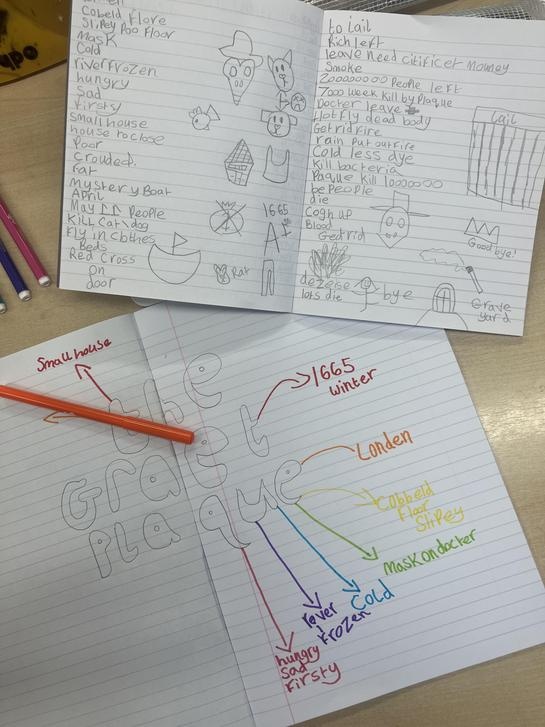 Cobeld Flore
Slipey Poo Floor
Mask
Cold
riverfrozen
hungry
Sad
Firsty
Small house
house to close
Poor
Crouded.
rat
Mystery Boat
April
May 11 People
Kill Cat & dog
Fly in Clothes
Beds
Red Cross
on
door
1665
A
Rat
to Lail
Rich left
leave need Citificet Mouney
Smoke
200000000 People left
7000 week kill by Plaque
Docter leave
Hot fly dead body
Get rid fire
rain put out fire
Cold less dye
Kill bacteria
Paque kill 1000000
be People
die
Cogh up
Blood
Get rid
dezeise
lots die
bye
Lail
Good bye!
Grave
yard
Small house
the
Graet
Plaque
1665
winter
Londen
Cobbeld
Floor
Slipey
Mask on docter
Cold
rever
Frozen
hungry
Sad
Firsty